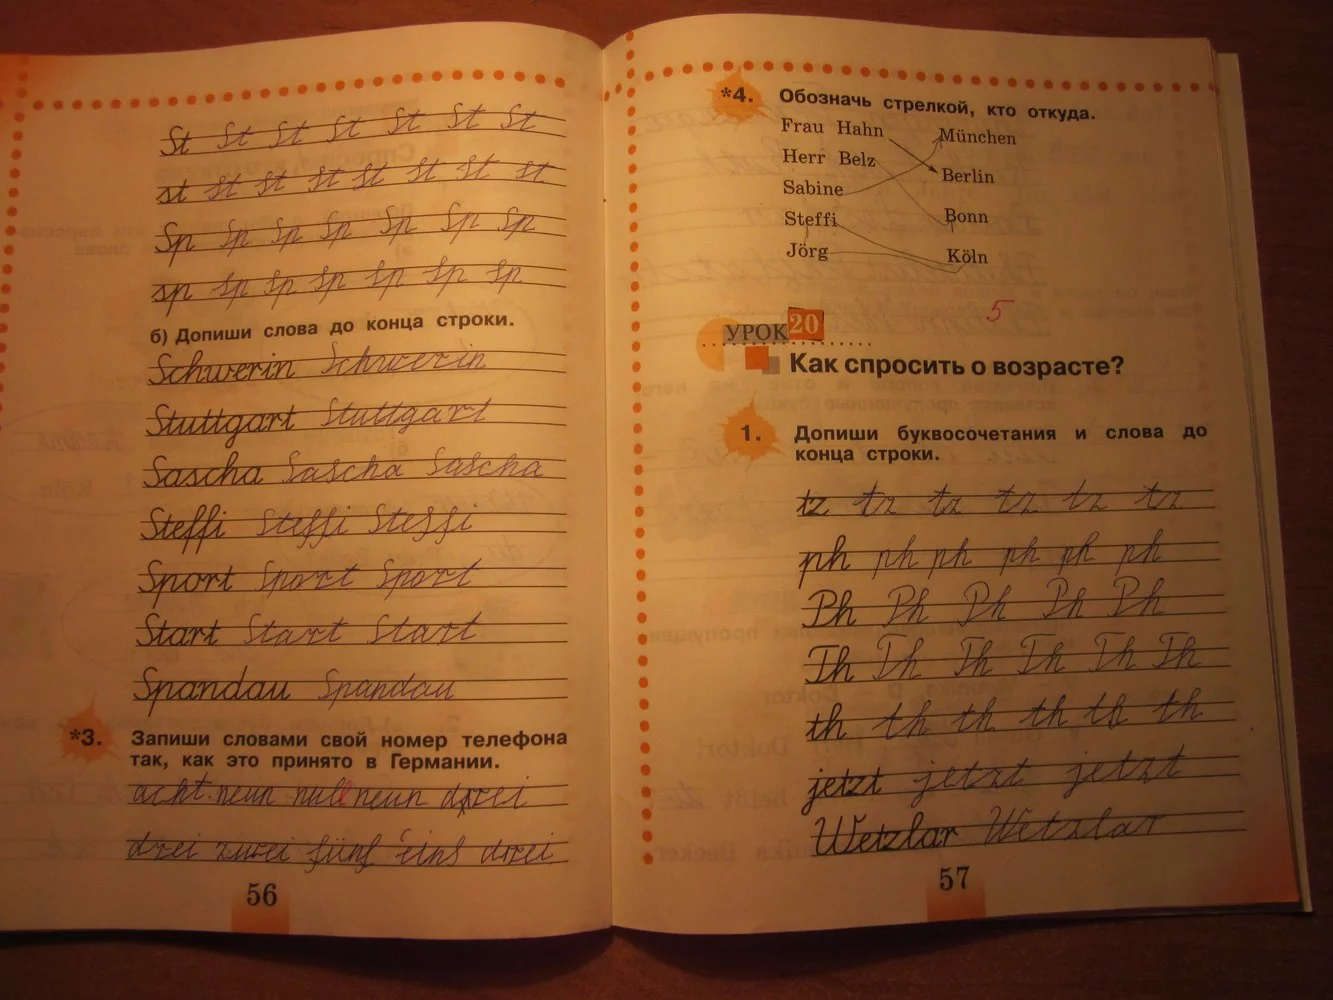 St St St St St St St
st st st st st st st st
Sp Sp Sp Sp Sp Sp Sp
sp sp sp sp sp sp sp
б) Допиши слова до конца строки.
Schwerin Schwerin
Stuttgart Stuttgart
Sascha Sascha Sascha
Steffi Steffi Steffi
Sport Sport Sport
Start Start Start
Spandau Spandau
*3. Запиши словами свой номер телефона
так, как это принято в Германии.
acht neun null neun drei
drei zwei fünf eins drei
56
*4. Обозначь стрелкой, кто откуда.
Frau Hahn München
Herr Belz Berlin
Sabine
Steffi Bonn
Jörg Köln
5
УРОК 20
Как спросить о возрасте?
1. Допиши буквосочетания и слова до
конца строки.
tz tz tz tz tz tz
ph ph ph ph ph ph
Ph Ph Ph Ph Ph
Th Th Th Th Th Th
th th th th th th
jetzt jetzt jetzt
Wetzlar Wetzlar
57